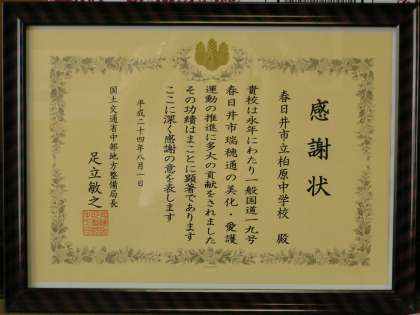 感謝状
春日井市立柏原中学校 殿
貴校は永年にわたり一般国道一九号
春日井市瑞穂通の美化・愛護
運動の推進に多大の貢献をされました
その功績はまことに顕著であります
ここに深く感謝の意を表します
平成二十四年八月一日
国土交通省中部地方整備局長
足立敏之